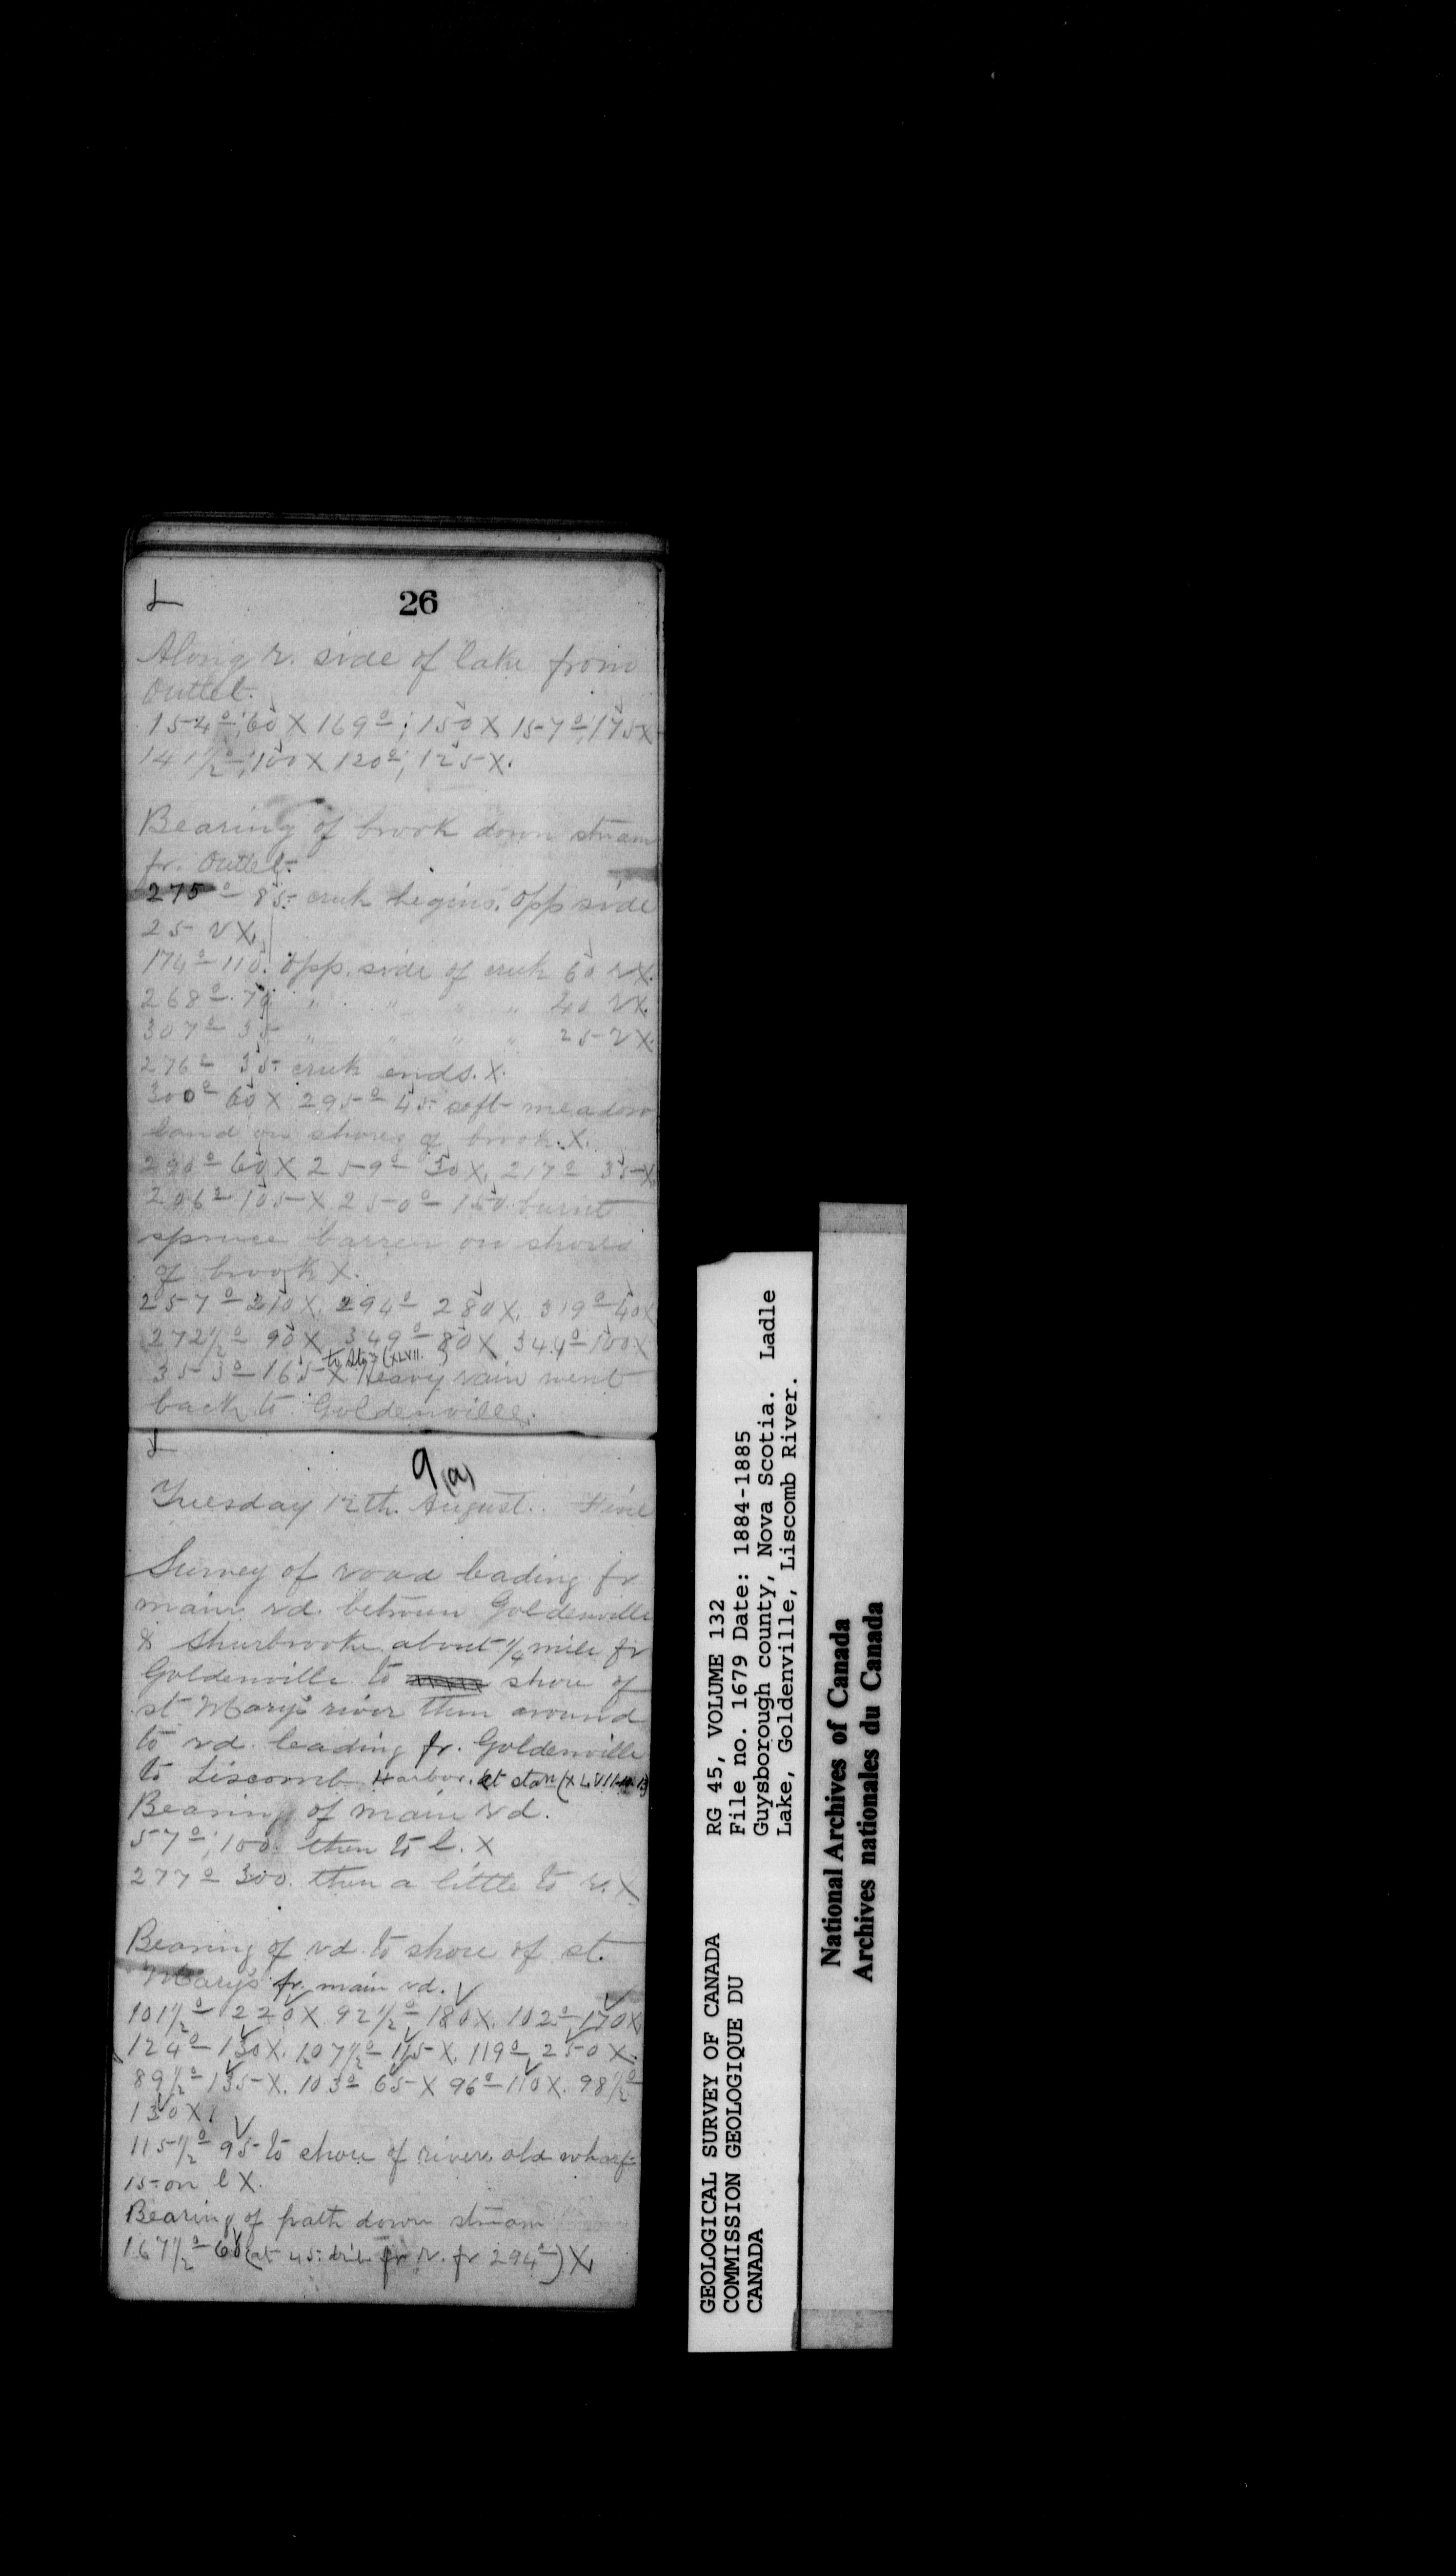 26
Along r. side of lake from
Outlet.
154°; 60 X 169°; 150 X 157°; 175 X
141½°; 100 X 120°; 125 X.
Bearing of brook down stream
fr. Outlet.
275° 85. creek begins. opp side
25 r X.
174° 110. opp. side of creek 60 r X.
268° 70 " " " " 40 r X.
307° 35 " " " " 25 r X.
276° 35. creek ends. X.
300° 60 X 295° 45. soft meadow
land on shores of brook. X.
290° 60 X 259° 50 X. 217° 35 X.
206° 105 X 250° 150. burnt
spruce barren on shores
of brook X.
257° 210 X. 294° 280 X. 319° 40 X
272½° 90 X 349° 80 X 344° 100 X
to Stn (XLVII. )
353° 165 X Heavy rain went
back to Goldenville.
9(a)
Tuesday 12th. August. Fine
Survey of road leading fr
main rd. between Goldenville
& Shurbrooke about ¼ mile fr
Goldenville to shore of
st Mary's river then around
to rd. leading fr. Goldenville
to Liscomb Harbor. at stan (XLVII
Bearing of main rd.
57°; 100. then to l. X
277° 300. then a little to r. X
Bearing of rd to shore of st.
Mary's fr. main rd.
101½° 220 X. 92½° 180 X. 102° 170 X.
124° 130 X. 107½° 115 X. 119° 250 X.
89½° 135 X. 103° 65 X 96° 110 X. 98½°
130 X.
115½° 95 to shore of river. old wharf
15 on l X.
Bearing of path down stream
167½° 60 (at 45. fr r. fr 294°) X.
GEOLOGICAL SURVEY OF CANADA RG 45, VOLUME 132
COMMISSION GEOLOGIQUE DU File no. 1679 Date: 1884-1885
CANADA Guysborough county, Nova Scotia. Ladle
Lake, Goldenville, Liscomb River.
National Archives of Canada
Archives nationales du Canada